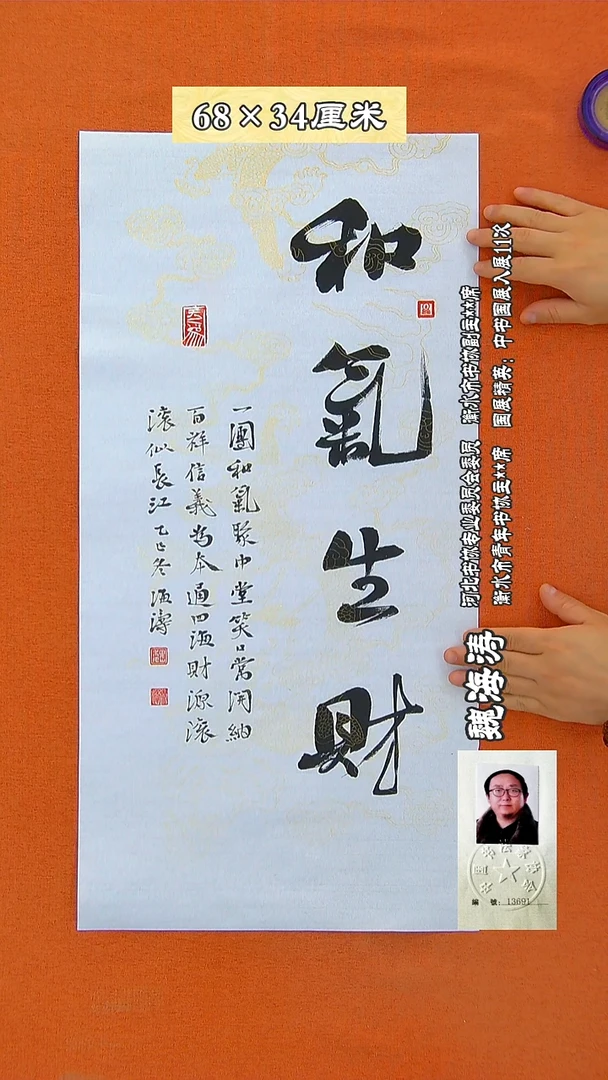 68×34厘米
和氣生財
一團和氣聚中堂笑口常開納
百祥信義為本通四海財源滾
滾似長江 乙巳冬海濤
衡水市书协副主**席
河北书协专业委员会委员
国展精英：中书国展入展11次
衡水市青年书协主**席
魏海涛
編 號：13691